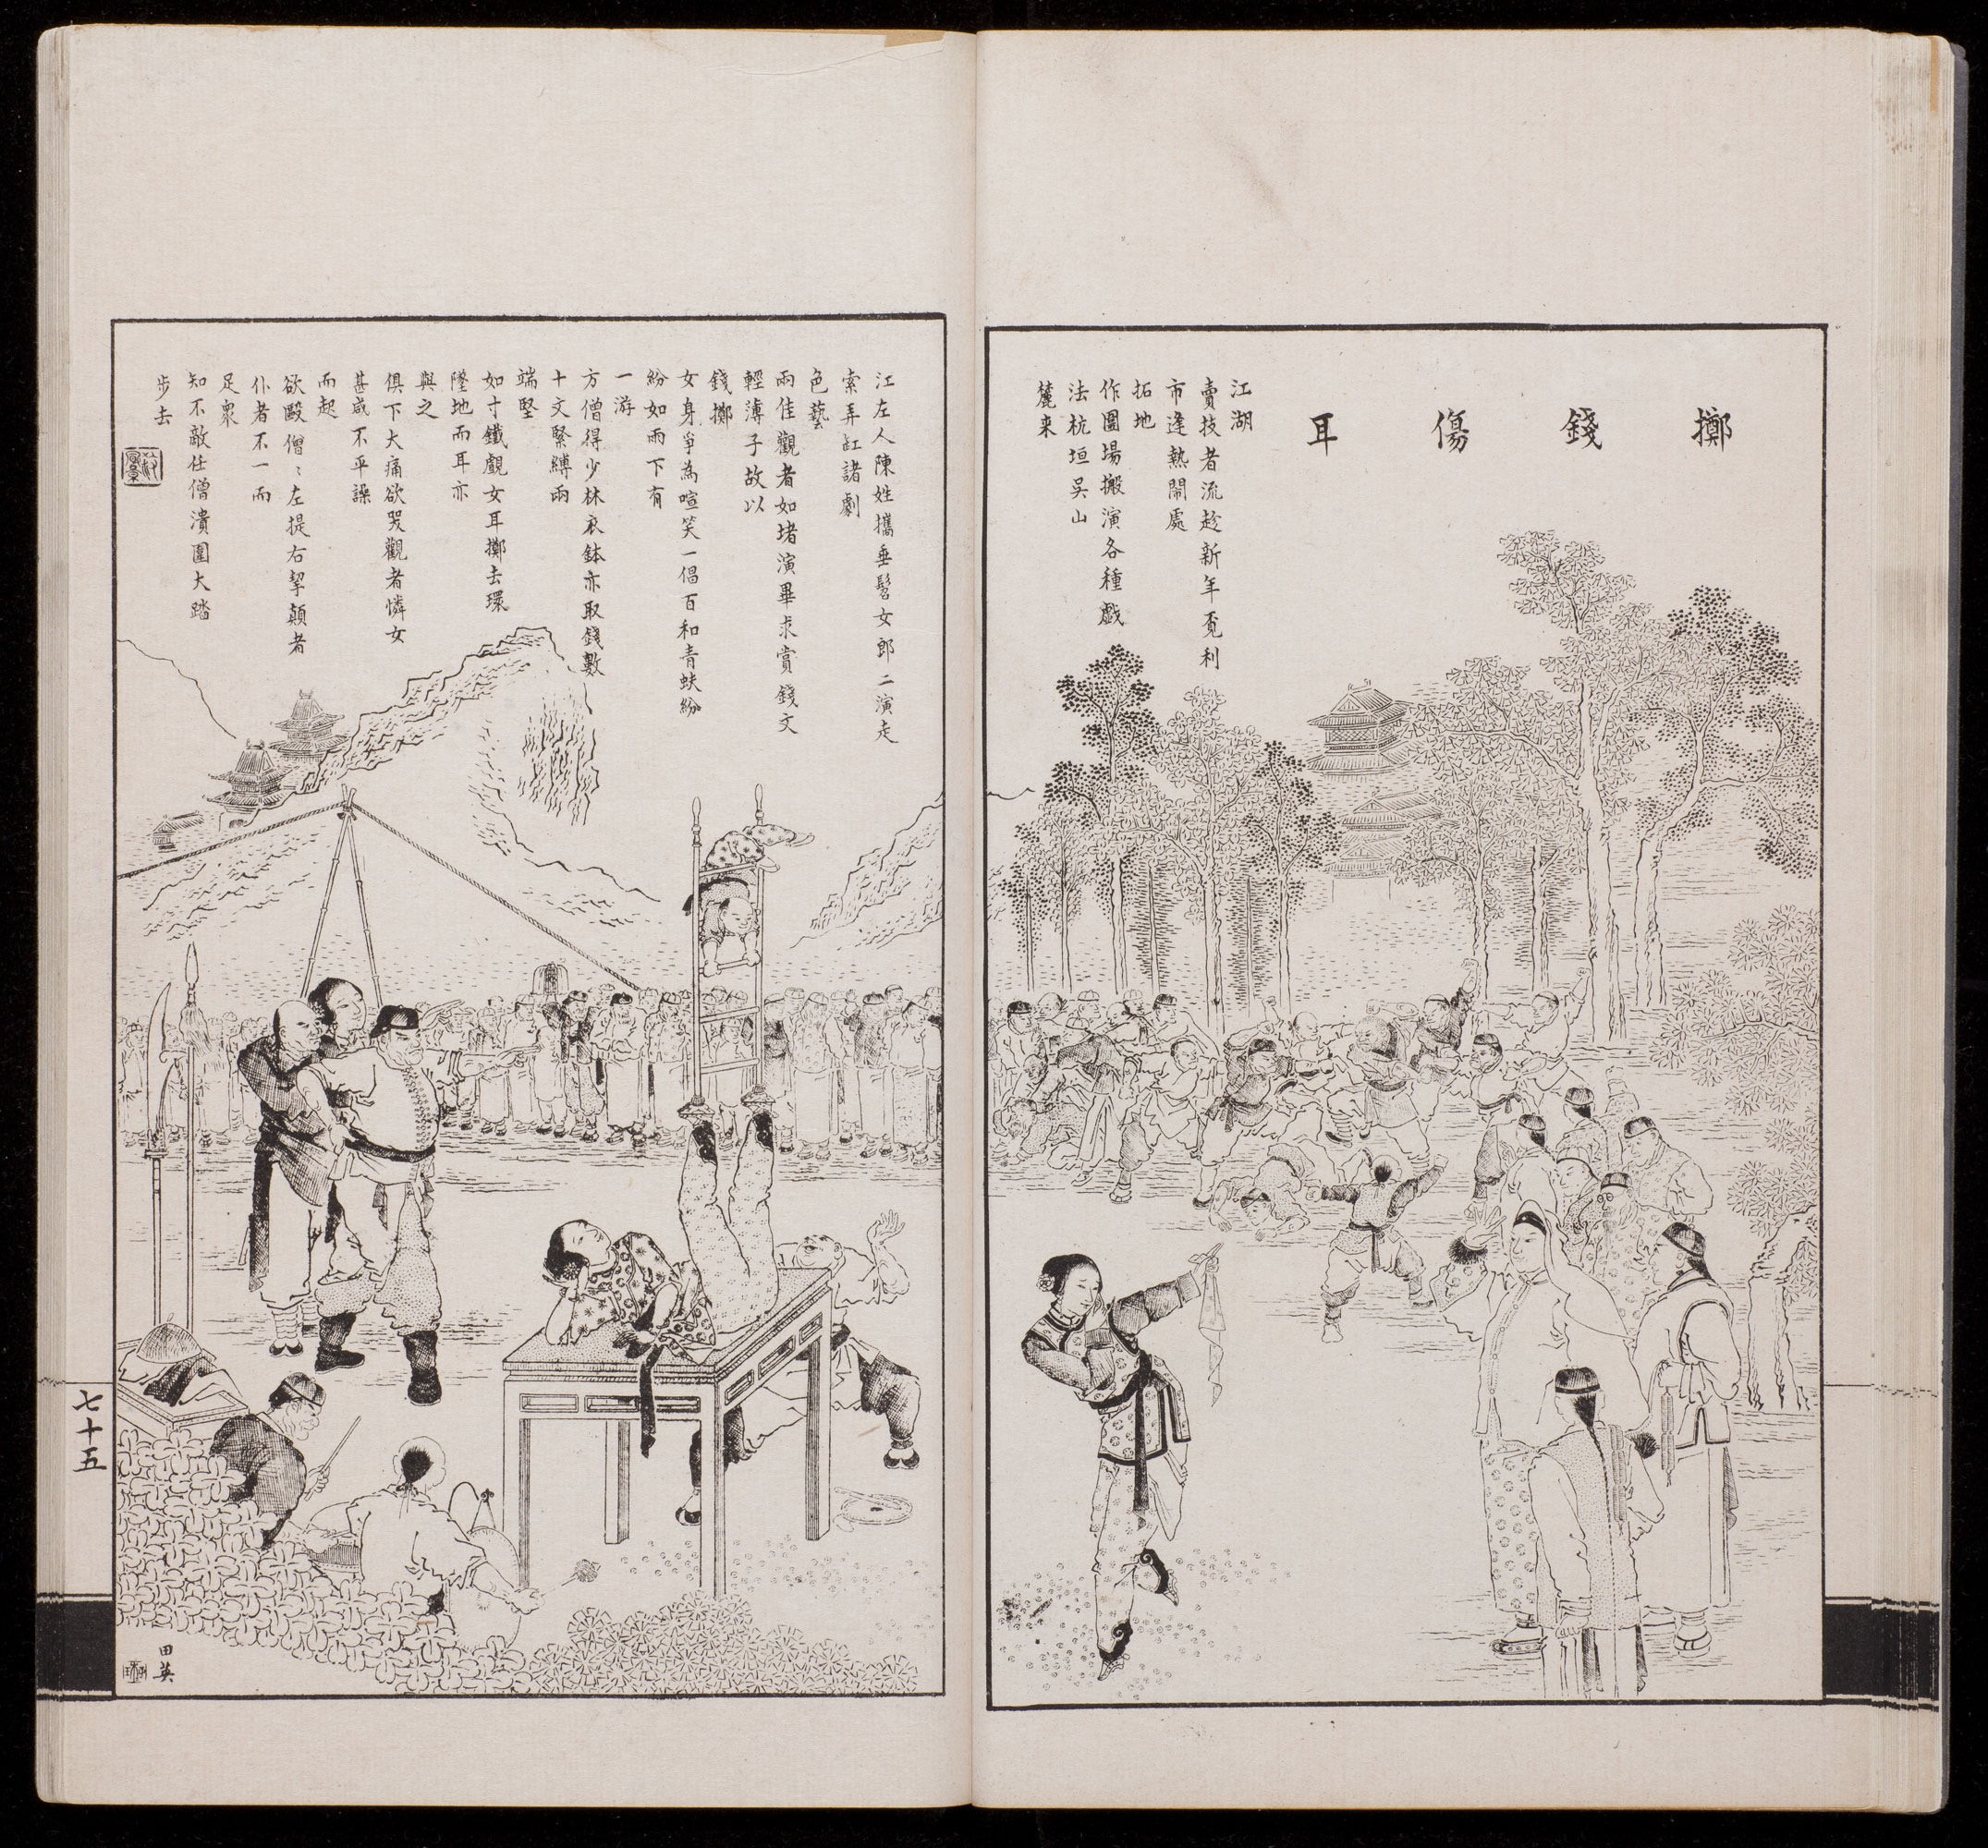 擲錢傷耳
江湖
賣技者流趁新年覓利
市逢熱鬧處
拓地
作圍場搬演各種戲
法杭垣吳山
麓来
江左人陳姓攜垂髫女郎二演走
索弄缸諸劇
色藝
兩佳觀者如堵演畢求賞錢文
輕薄子故以
錢擲
女身爭為喧笑一倡百和青蚨紛
紛如雨下有
一游
方僧得少林衣鉢亦取錢數
十文緊縛兩
端堅
如寸鐵覷女耳擲去環
墮地而耳亦
與之
俱下大痛欲哭觀者憐女
甚咸不平譟
而起
欲毆僧〻左提右挈顛者
仆者不一而
足衆
知不敵任僧潰圍大踏
步去
田英
七十五